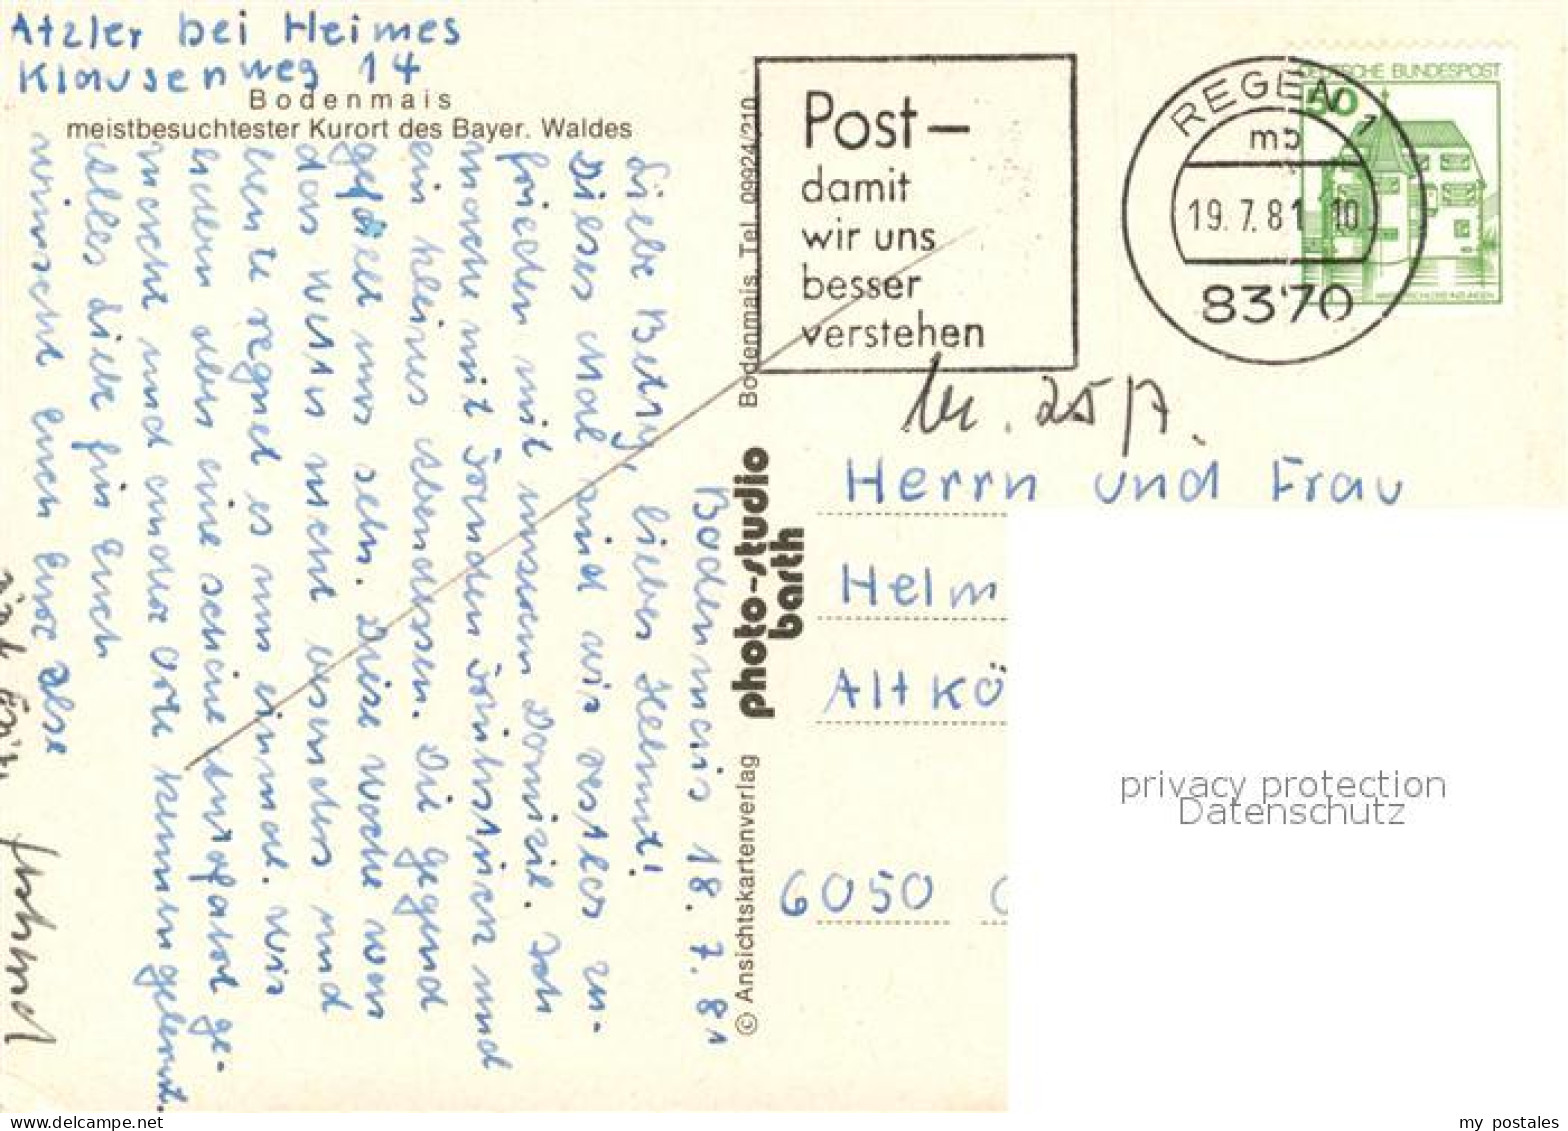 Atzler bei Heimes
Klausenweg 14
Bodenmais
meistbesuchtester Kurort des Bayer. Waldes
Post–
damit
wir uns
besser
verstehen
REGEN 1
mb
19.7.81 10
8370
DEUTSCHE BUNDESPOST
50
Bodenmais 18. 7. 81
Liebe Betty, lieber Helmut!
Dieses Mal sind wir restlos zu-
frieden mit unserem Domizil. Ich
mache mit Tanden Frühstück und
ein kleines Abendessen. Die Gegend
gefällt uns sehr. Diese Woche war
das Wetter nicht besonders und
heute regnet es nun einmal. Wir
haben aber eine schöne Rundfahrt ge-
macht und andere Orte kennengelernt.
Alles Liebe für Euch
wünscht Euch Eure Ilse
Helmut
photo-studio
barth
© Ansichtskartenverlag
Bodenmais, Tel. 09924/210
25/7.
Herrn und Frau
Helm
Altkö
6050
privacy protection
Datenschutz
my postales